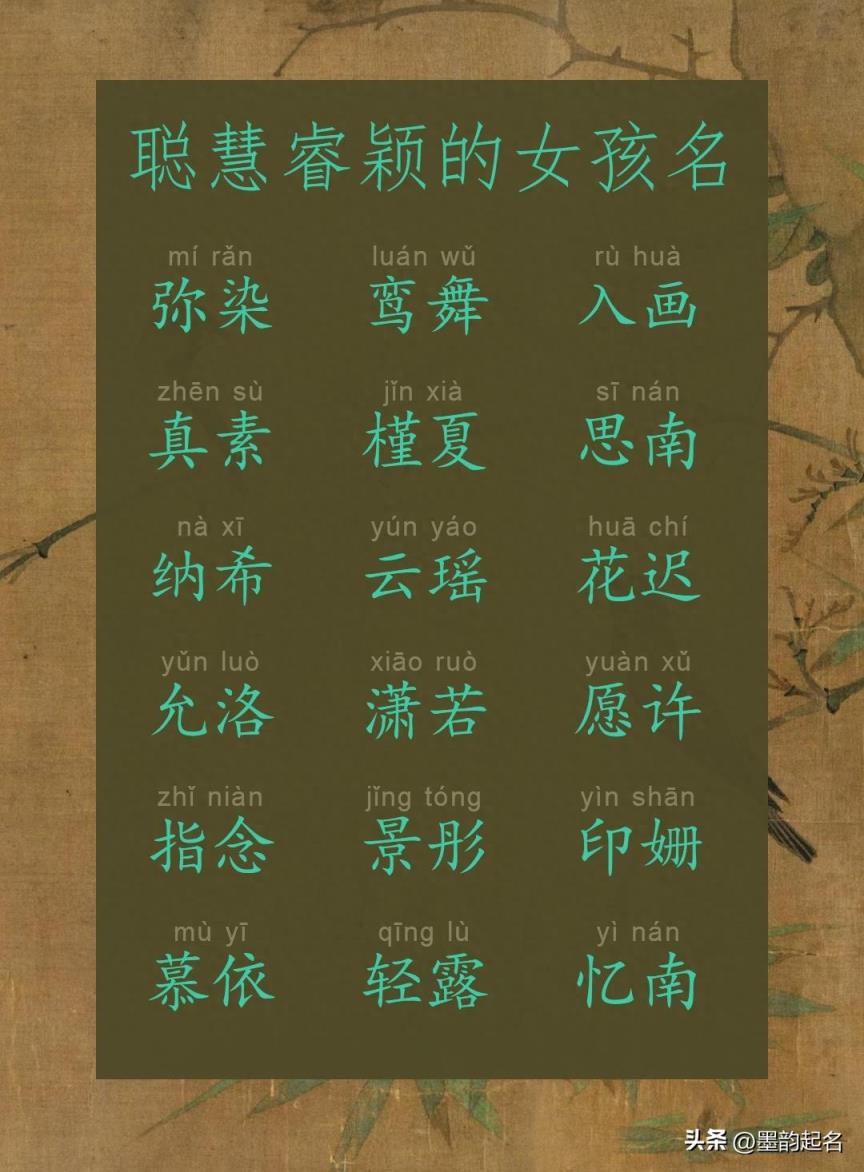 聪慧睿颖的女孩名
mí rǎn luán wǔ rù huà
弥染 鸾舞 入画
zhēn sù jǐn xià sī nán
真素 槿夏 思南
nà xī yún yáo huā chí
纳希 云瑶 花迟
yǔn luò xiāo ruò yuàn xǔ
允洛 潇若 愿许
zhǐ niàn jǐng tóng yìn shān
指念 景彤 印姗
mù yī qīng lù yì nán
慕依 轻露 忆南
头条 @墨韵起名